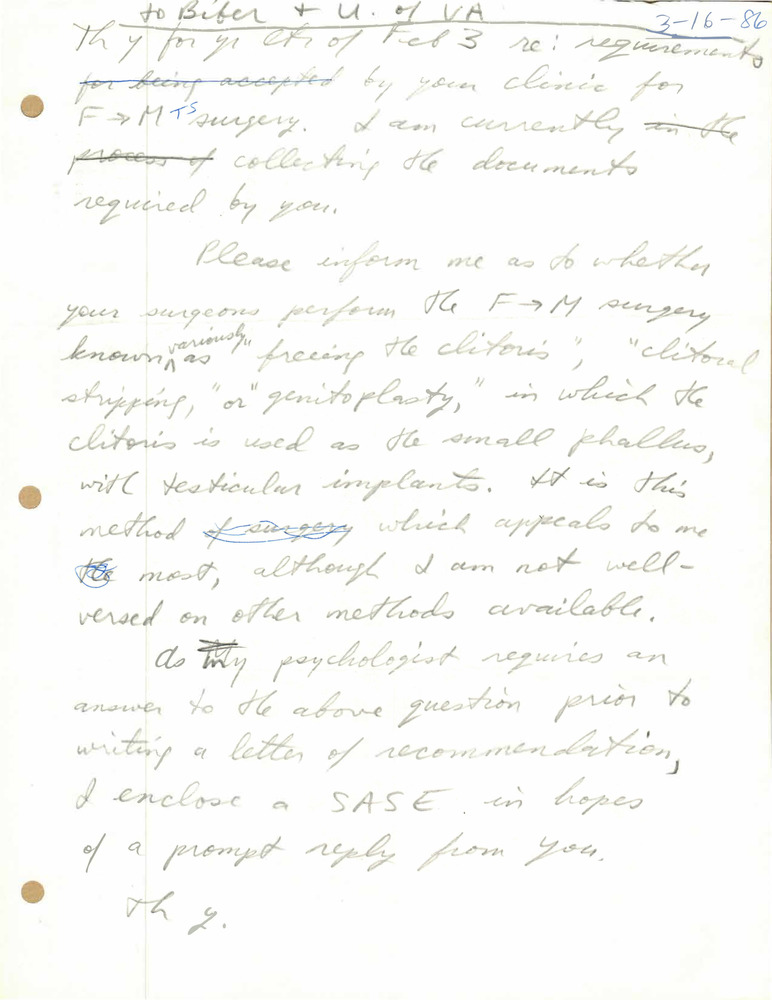 to Biber + U. of VA
3-16-86
Th y for yr ltrs of Feb 3 re: requirements
for being accepted by your clinic for
F→M TS surgery. I am currently in the
process of collecting the documents
required by you.
Please inform me as to whether
your surgeons perform the F→M surgery
known variously as "freeing the clitoris", "clitoral
stripping," or "genitoplasty," in which the
clitoris is used as the small phallus,
with testicular implants. It is this
method of surgery which appeals to me
the most, although I am not well-
versed on other methods available.
As my psychologist requires an
answer to the above question prior to
writing a letter of recommendation,
I enclose a SASE in hopes
of a prompt reply from you.
Th y.